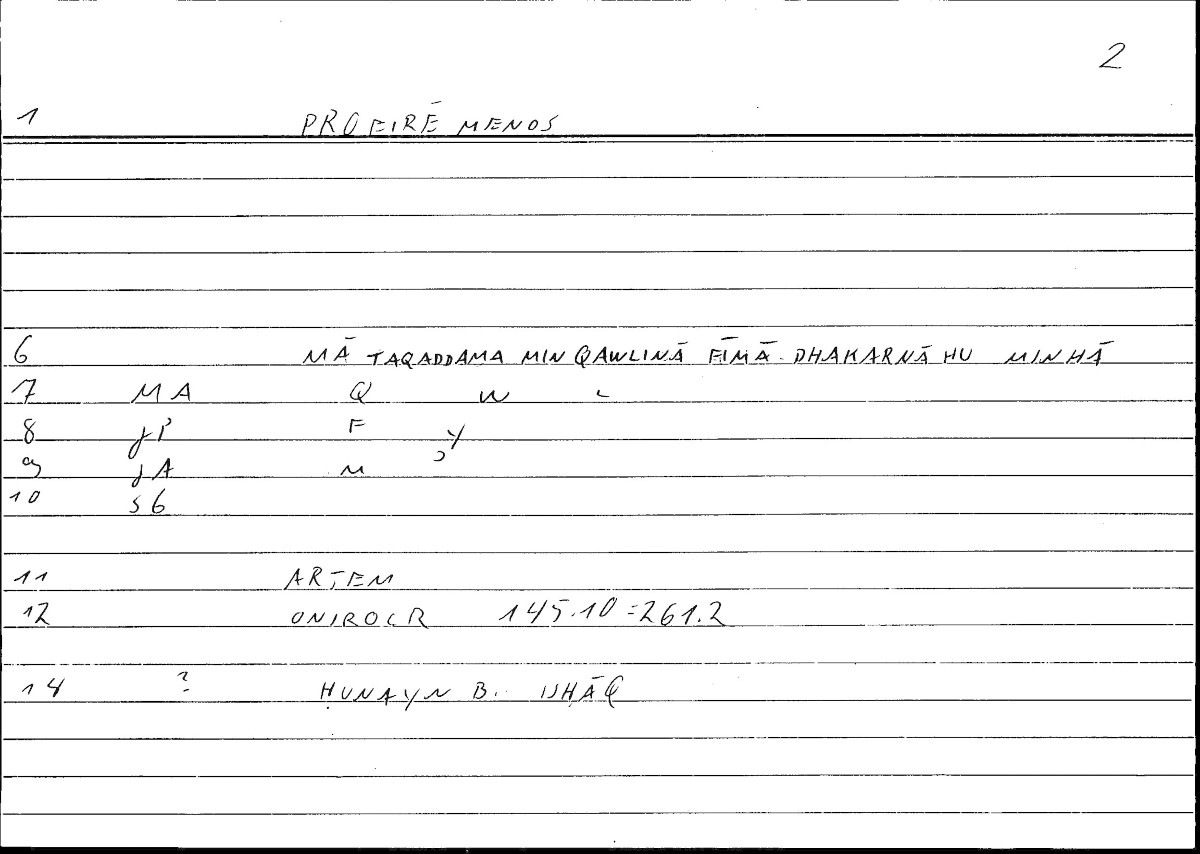 2
1 PROEIRĒMENOS
6 MĀ TAQADDAMA MIN QAWLINĀ FĪMĀ DHAKARNĀHU MINHĀ
7 MA Q W L
8 JP F Y
9 JA M ɔ
10 S6
11 ARTEM
12 ONIROCR 145.10=261.2
14 ? ḤUNAYN B. ISḤĀQ